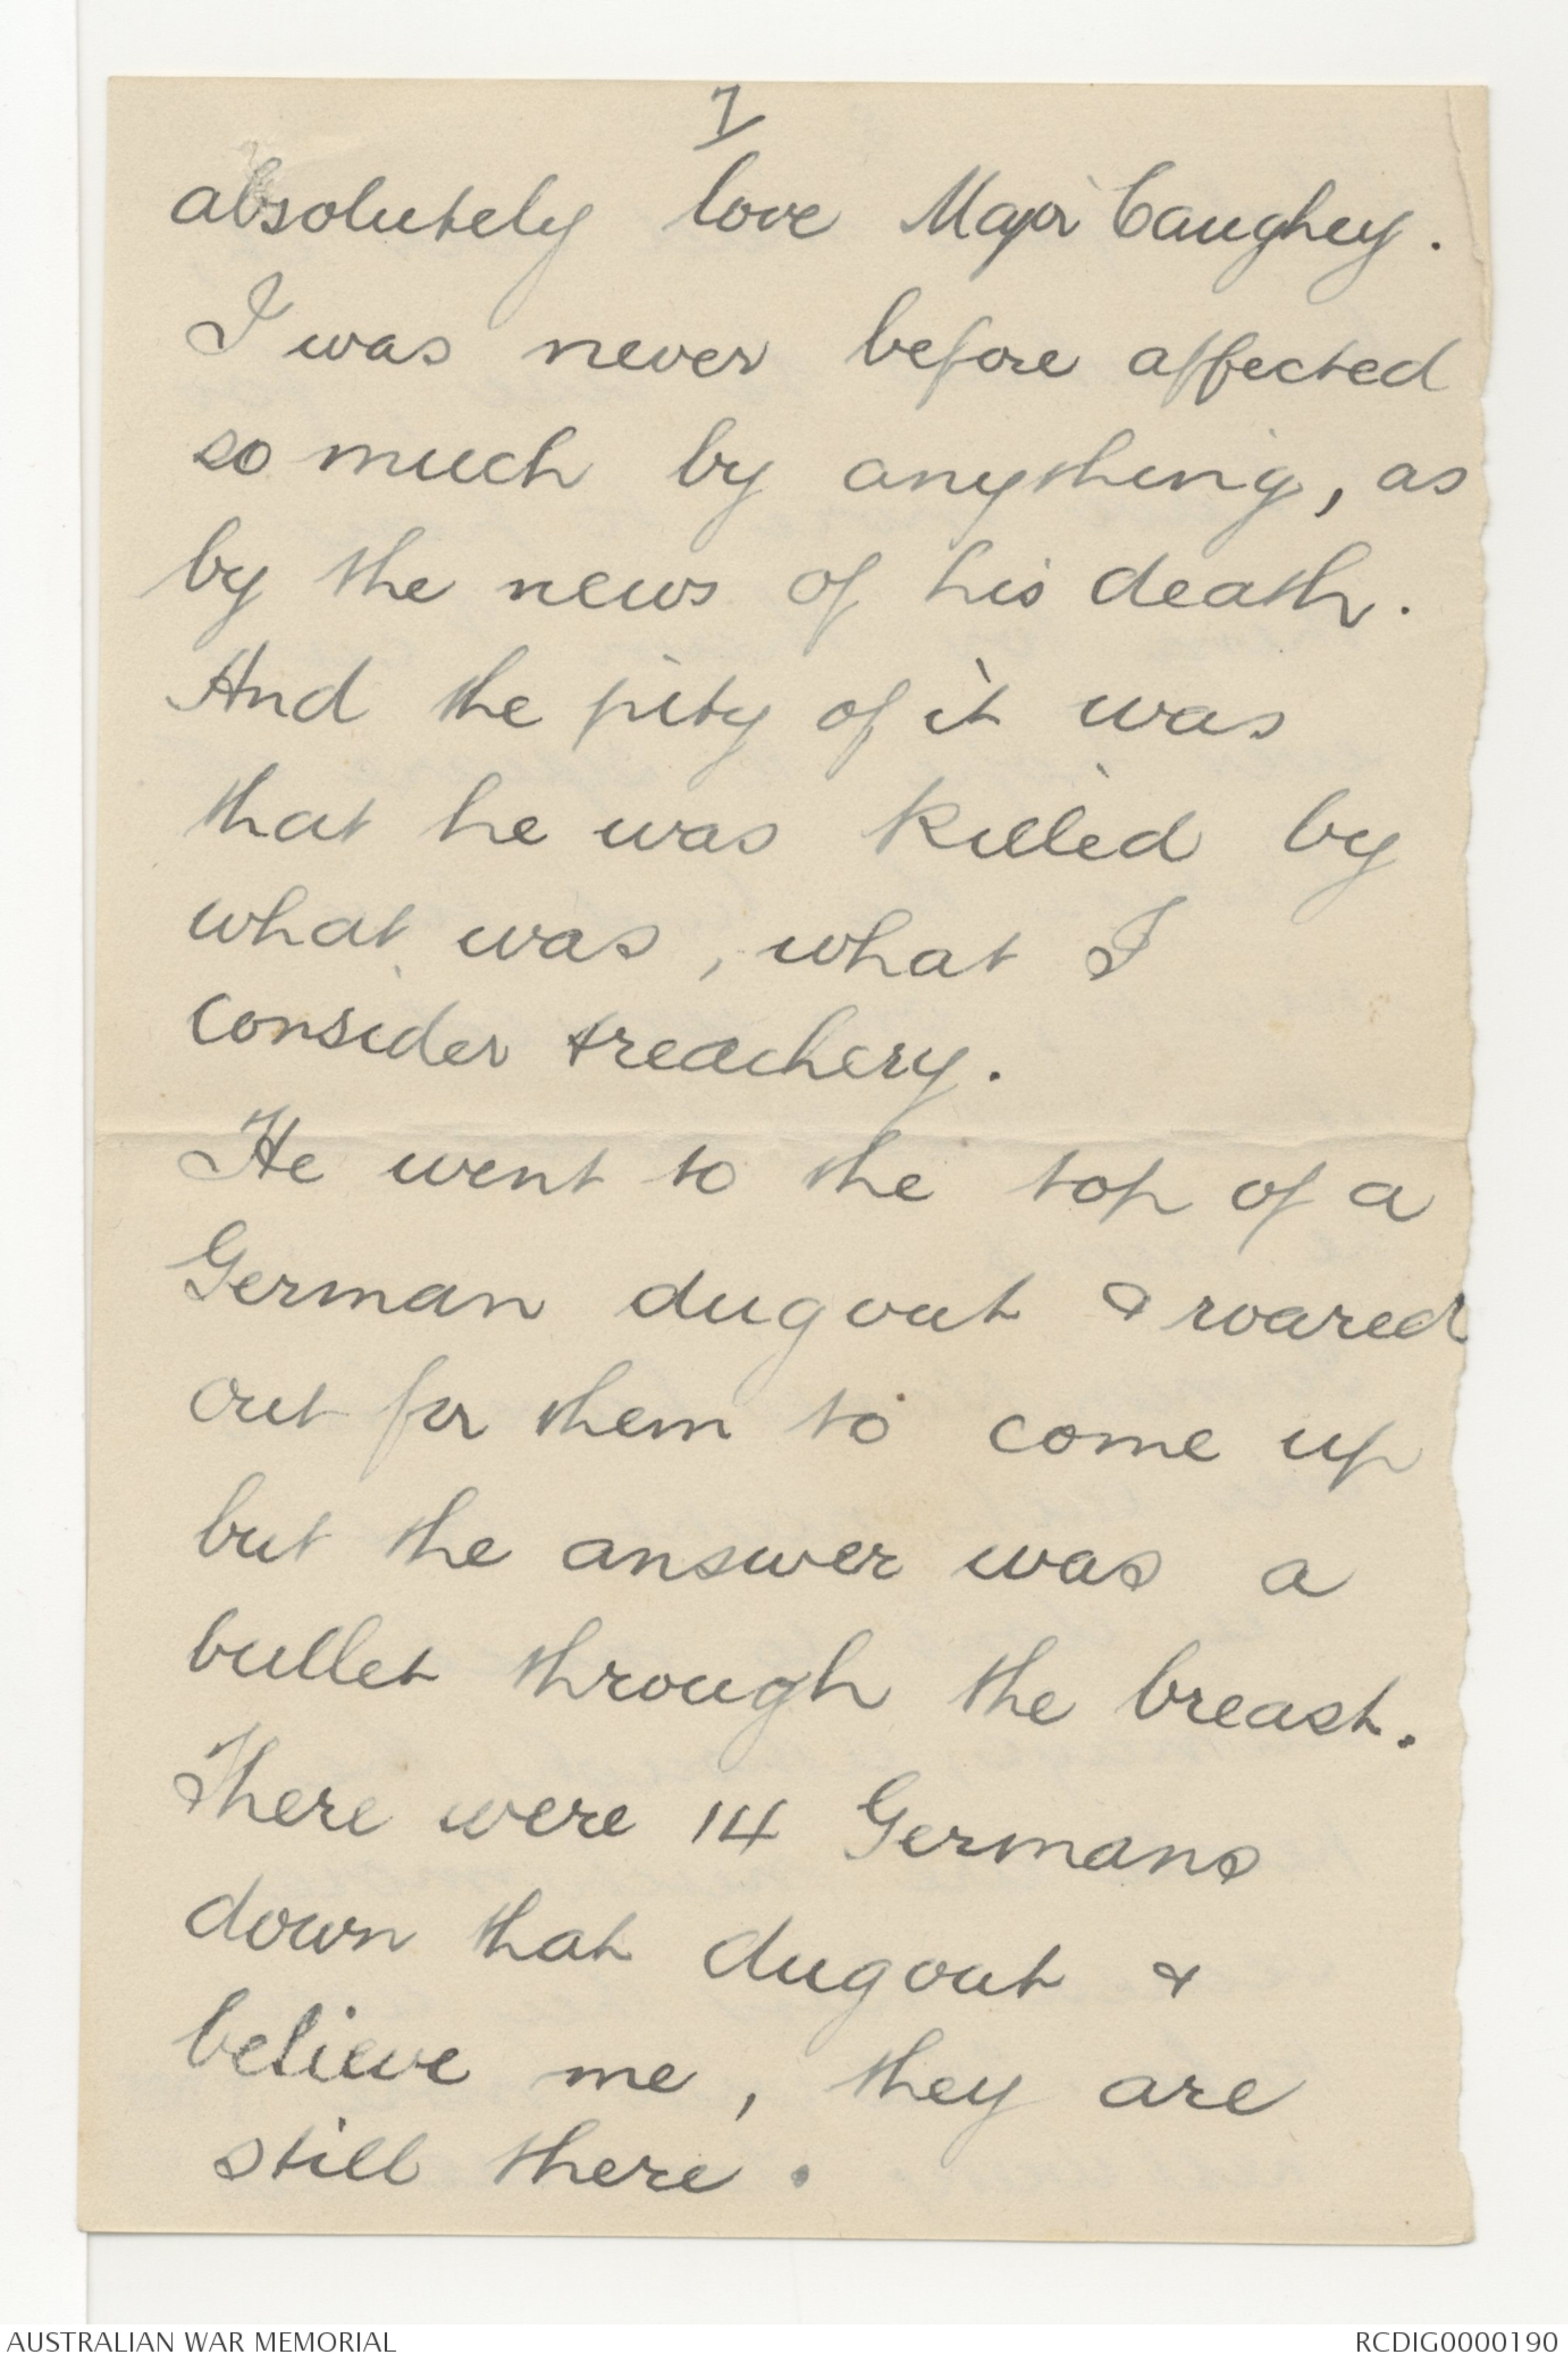 7
absolutely love Major Caughey.
I was never before affected
so much by anything, as
by the news of his death.
And the pity of it was
that he was killed by
what was, what I
consider treachery.
He went to the top of a
German dugout & roared
out for them to come up
but the answer was a
bullet through the breast.
There were 14 Germans
down that dugout &
believe me, they are
still there.
AUSTRALIAN WAR MEMORIAL
RCDIG0000190